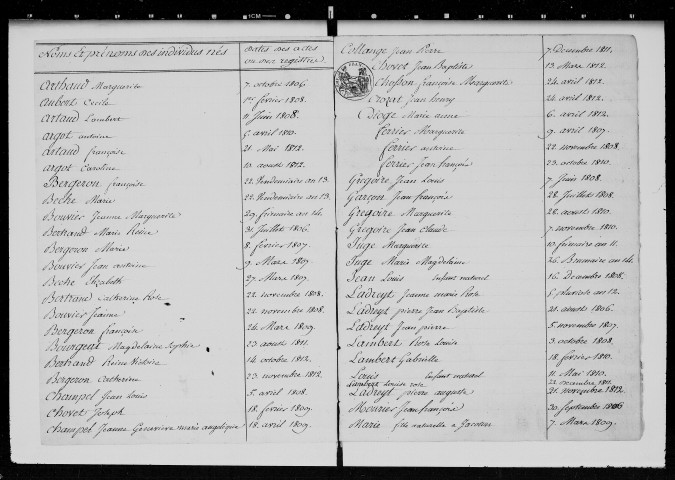 Noms et prénoms des individus nés | Dates des actes ou des registres
Arthaud Marguerite 7 octobre 1806.
Aubert Cecile 1er fevrier 1808.
Artaud Lambert 11 Juin 1808.
argot antoine 6 avril 1810.
artaud françoise 21 Mai 1812.
argot Caroline 10 aoust 1812.
Bergeron françoise 22 Vendemiaire an 13.
Beche Marie 22 Vendemiaire an 13.
Bouvier Jeanne Marguerite 29 frimaire an 14.
Bertrand Marie Reine 31 Juillet 1806.
Bergeron Marie 8 fevrier 1807.
Bouvier Jean antoine 9 Mars 1807.
Beche Elizabeth 27 Mars 1807.
Bertrand Catherine Rose 22 novembre 1808.
Bouvier Jeanne 22 novembre 1808.
Bergeron françoise 26 Mars 1809.
Bourgeat Magdelaine Sophie 23 aoust 1811.
Bertrand Reine Victoire 14 octobre 1812.
Bergeron Catherine 23 novembre 1812.
Champel Jean Louis 5 avril 1808.
Chovet Joseph 18 fevrier 1809.
Champel Jeanne Genevieve marie angelique 18 avril 1809.
Collange Jean Pierre 7 Decembre 1811.
Chovet Jean Baptiste 13 Mars 1812.
Chosson françoise Marguerite 24 avril 1812.
Crozat Jean henry 24 avril 1812.
Marie anne 6 avril 1812.
ferrier Marguerite 9 avril 1807.
ferrier antoine 22 novembre 1808.
ferrier Jean françois 23 octobre 1810.
Gregoire Jean Louis 7 Juin 1808.
Garçon Jean françois 28 Juillet 1808.
Gregoire Marguerite 28 aoust 1810.
Gregoire Jean claude 7 novembre 1810.
Juge Marguerite 10 frimaire an 11.
Juge Marie Magdelaine 26 Brumaire an 14.
Jean Louis enfant naturel 16 Decembre 1808.
Ladreyt Jeanne marie Rose 6 pluviose an 12.
Ladreyt pierre Jean Baptiste 21 aoust 1806.
Ladreyt Jean pierre 5 novembre 1807.
Lambert Rose Louise 3 octobre 1808.
Lambert Gabrielle 18 fevrier 1810.
Louis enfant naturel 11 Mai 1810.
Lambert Louise rose 22 decembre 1811.
Ladreyt pierre auguste 21 novembre 1812.
Meurier Jean françois 30 Septembre 1806
Marie fille naturelle a 7 Mars 1809.